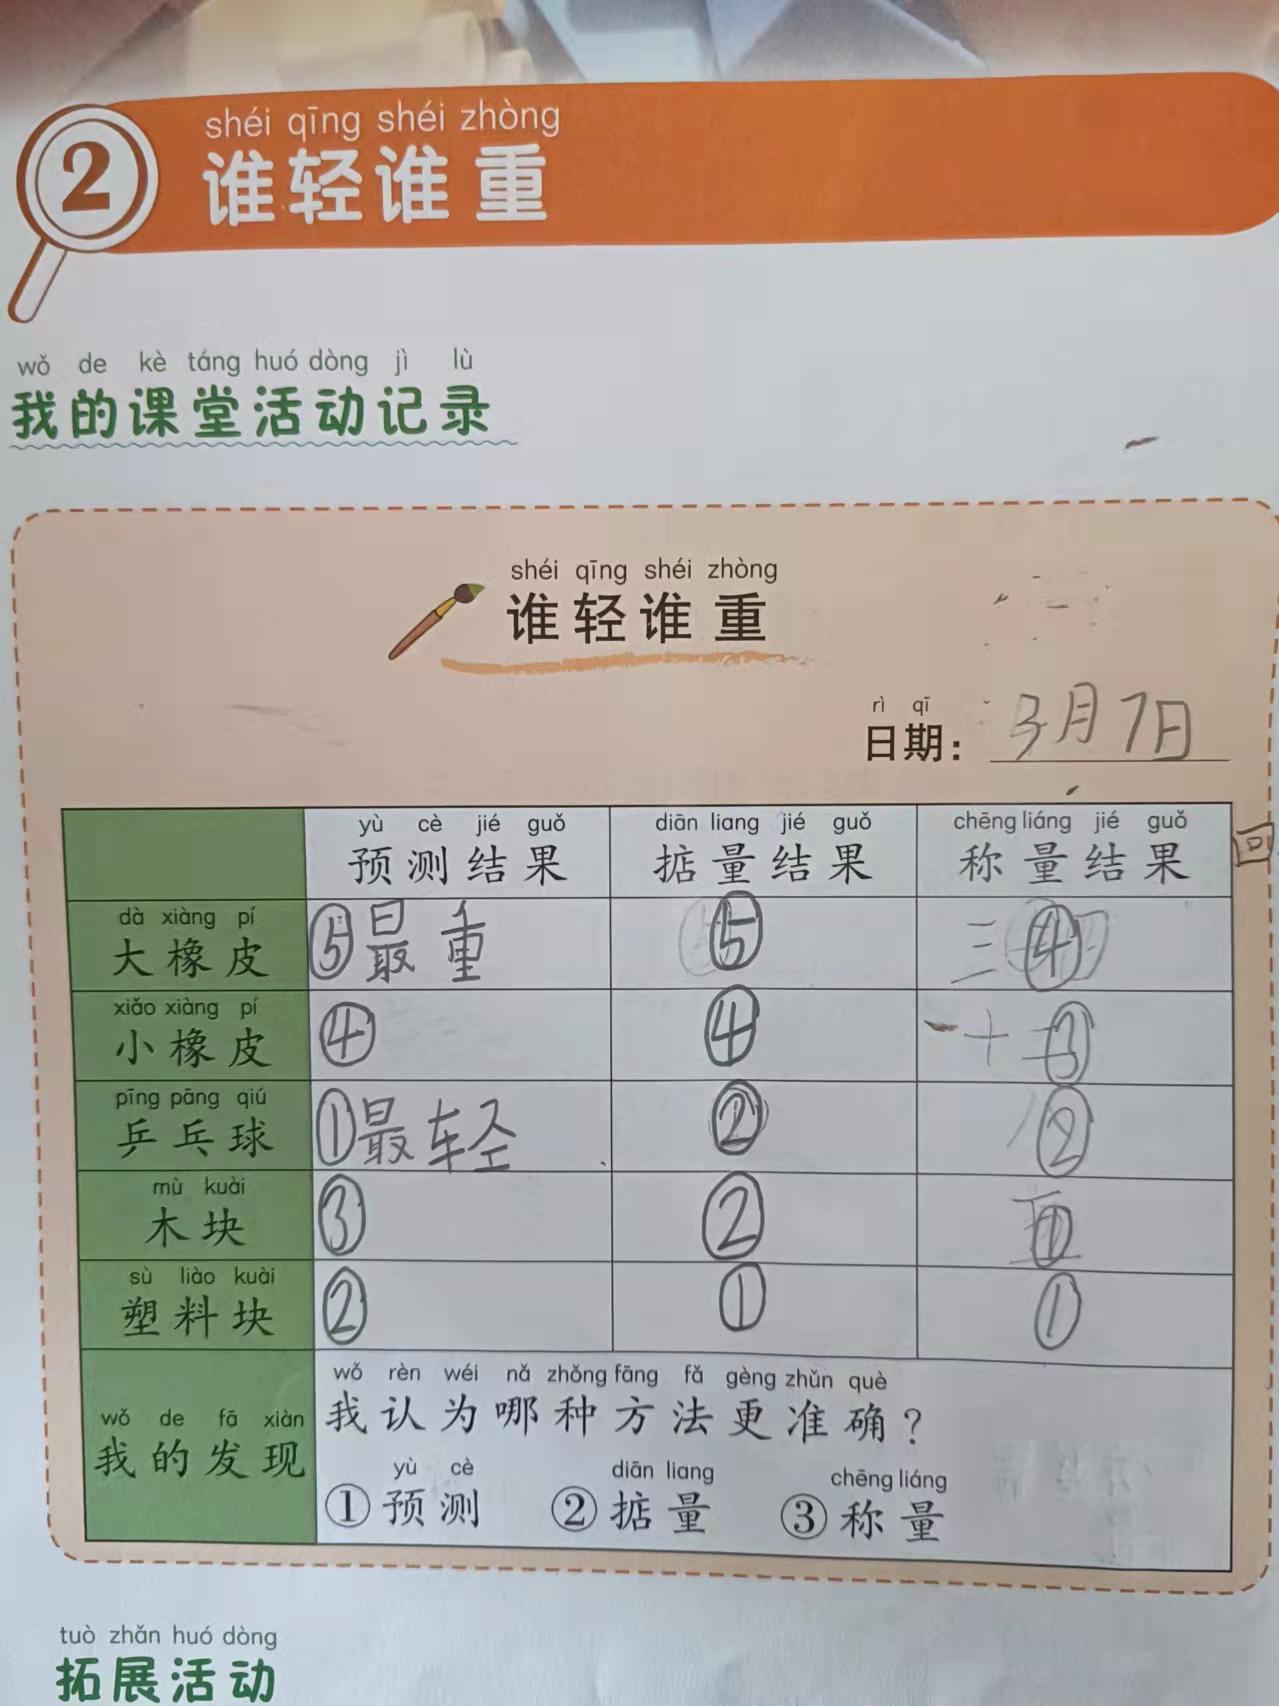 2
shéi qīng shéi zhòng
谁轻谁重
wǒ de kè táng huó dòng jì lù
我的课堂活动记录
shéi qīng shéi zhòng
谁轻谁重
rì qī
日期： 3月7日
yù cè jié guǒ diān liang jié guǒ chēng liáng jié guǒ
预测结果 掂量结果 称量结果 回
dà xiàng pí
大橡皮 ⑤最重 ⑤ 三 ④
xiǎo xiàng pí
小橡皮 ④ ④ ③
pīng pāng qiú
乒乓球 ①最轻 ② ②
mù kuài
木块 ③ ② ①
sù liào kuài
塑料块 ② ① ①
wǒ rèn wéi nǎ zhǒng fāng fǎ gèng zhǔn què
我认为哪种方法更准确？
wǒ de fā xiàn
我的发现
yù cè diān liang chēng liáng
①预测 ②掂量 ③称量
tuò zhǎn huó dòng
拓展活动